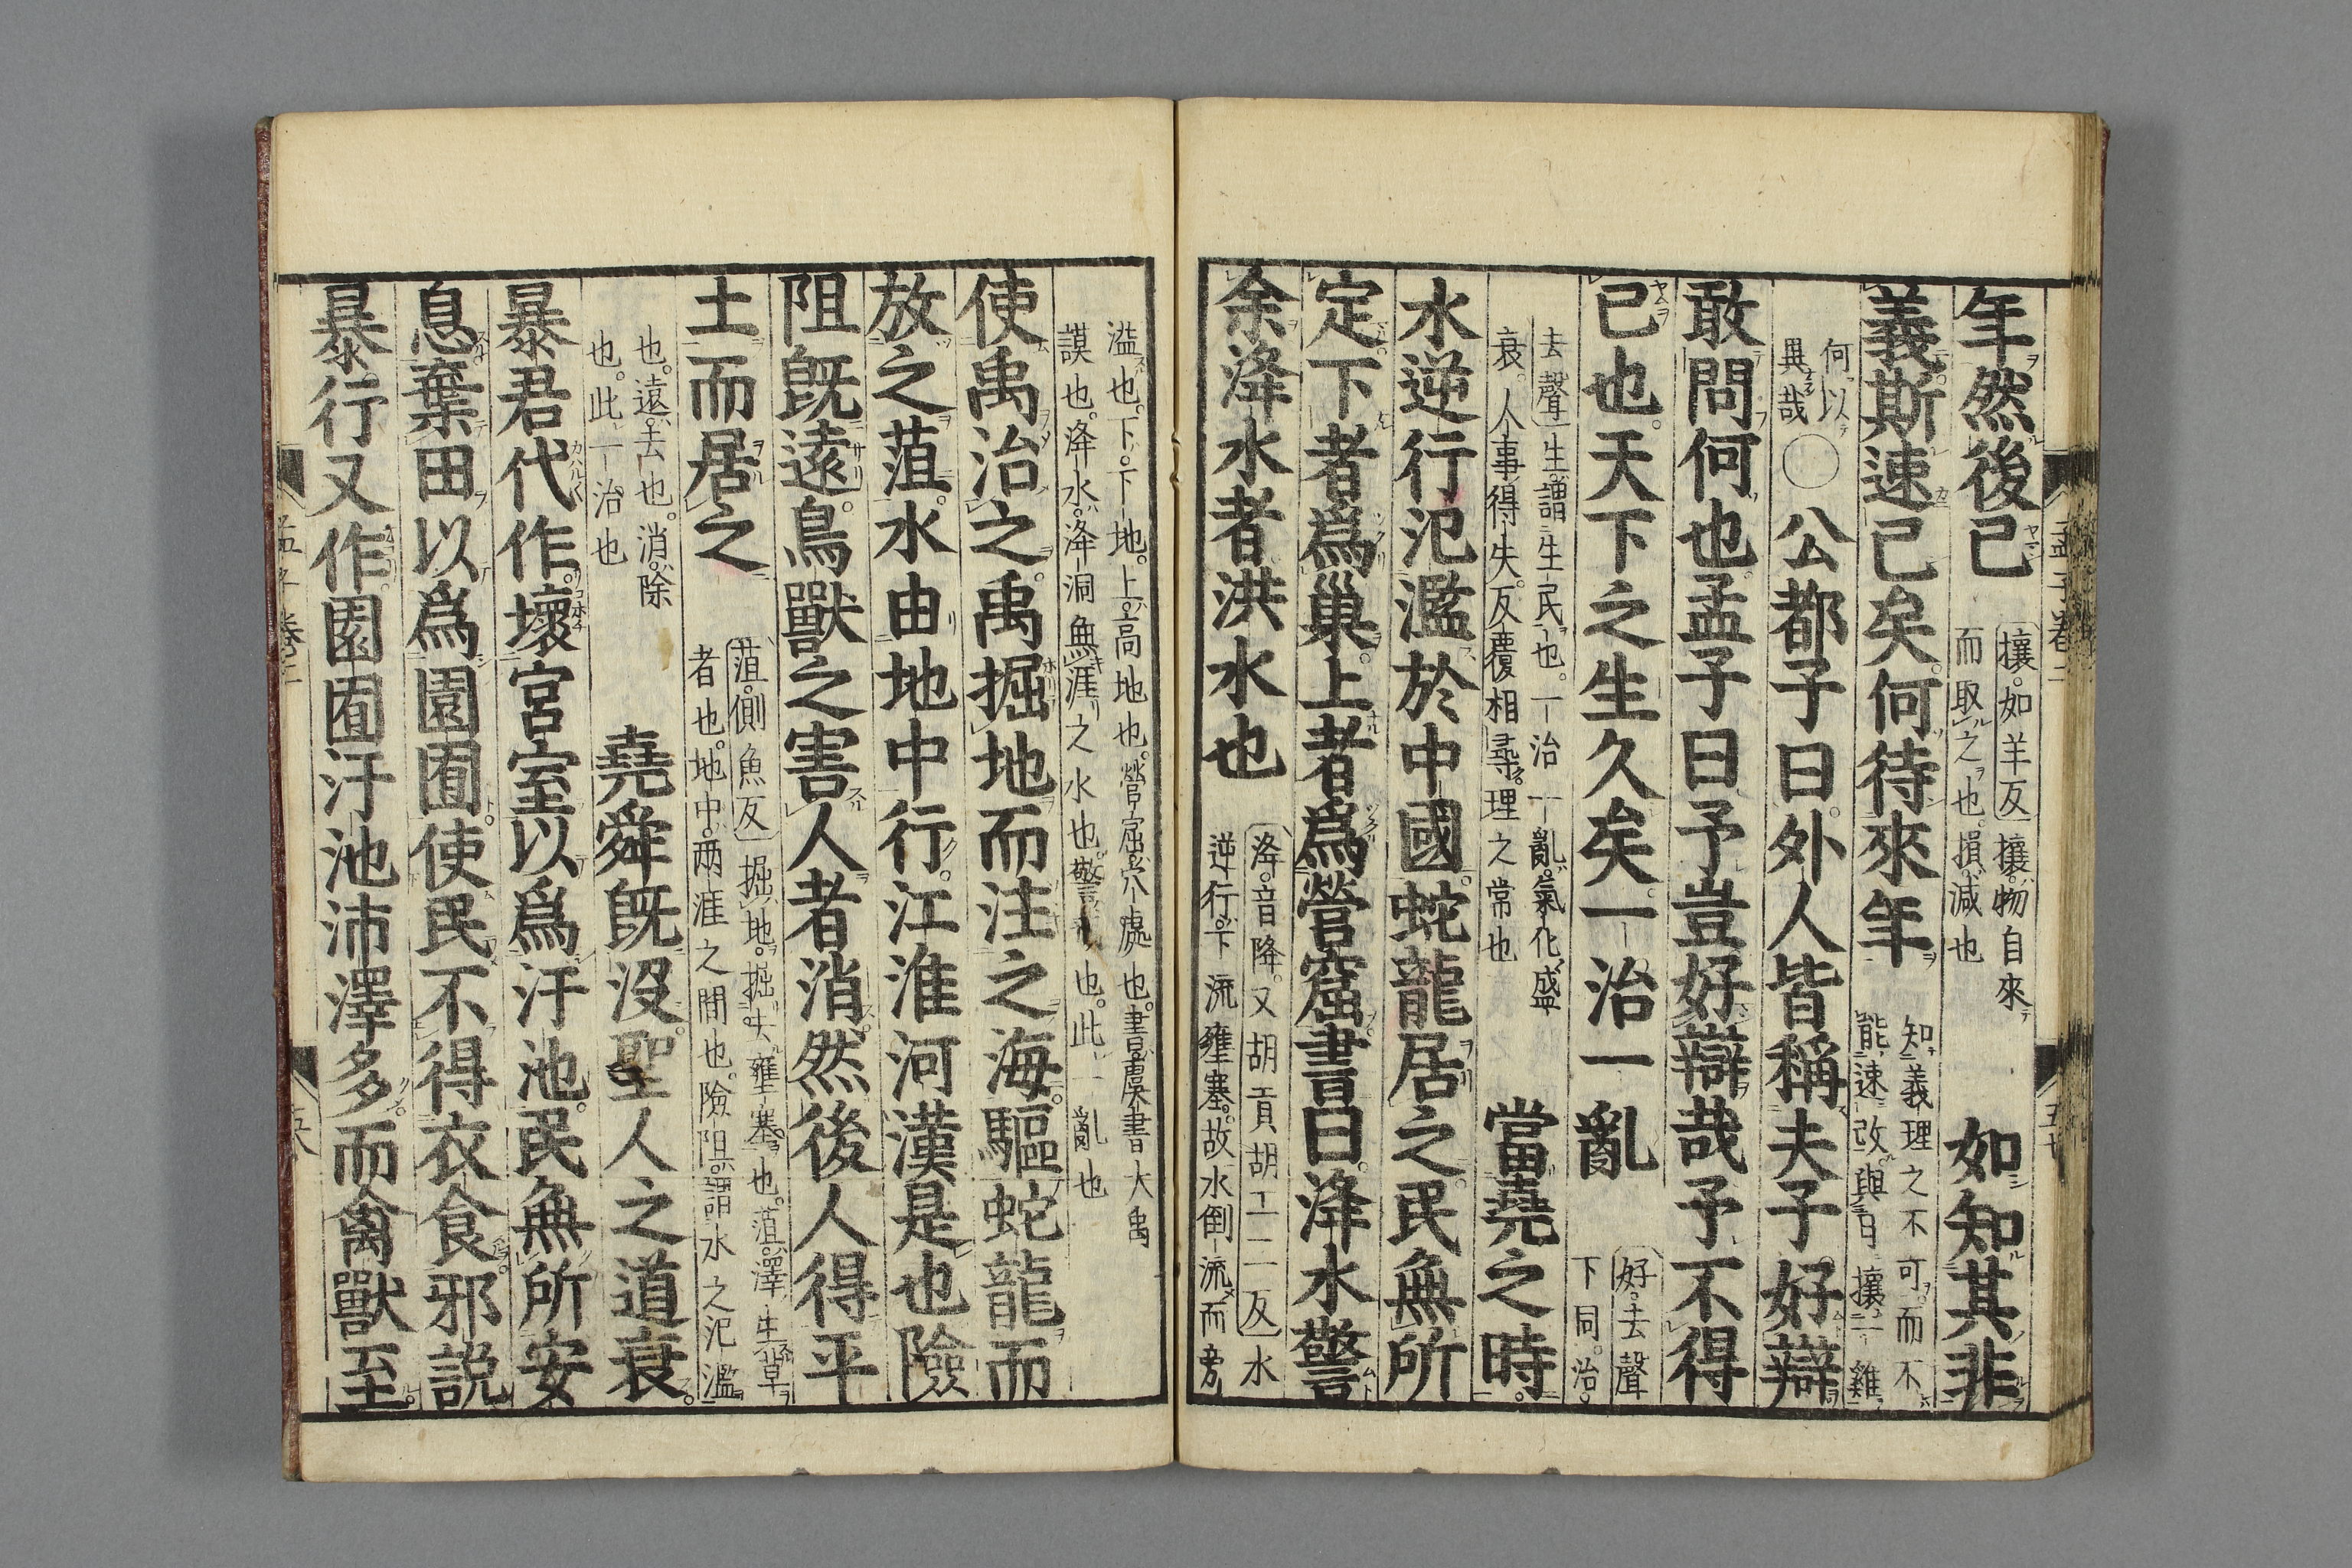 年然後已攘如羊反攘物自來而取之也損減也如知其非
義斯速已矣何待來年知義理之不可而不能速改與月攘一雞
何以異哉○公都子曰外人皆稱夫子好辯
敢問何也孟子曰予豈好辯哉予不得
已也天下之生久矣一治一亂好去聲下同治
去聲生謂生民也一治一亂氣化盛衰人事得失反覆相尋理之常也當堯之時
水逆行氾濫於中國蛇龍居之民無所
定下者爲巢上者爲營窟書曰洚水警
余洚水者洪水也洚音降又胡貢胡工二反水逆行下流壅塞故水倒流而旁
溢也下下地上高地也營窟穴處也書虞書大禹謨也洚水洚洞無涯之水也警也此一亂也
使禹治之禹掘地而注之海驅蛇龍而
放之菹水由地中行江淮河漢是也險
阻既遠鳥獸之害人者消然後人得平
土而居之菹側魚反掘地掘去壅塞也菹澤生草者也地中兩涯之間也險阻謂水之氾濫
也遠去也消除也此一治也堯舜既沒聖人之道衰
暴君代作壞宮室以爲汙池民無所安
息棄田以爲園囿使民不得衣食邪説
暴行又作園囿汙池沛澤多而禽獸至
孟子卷二